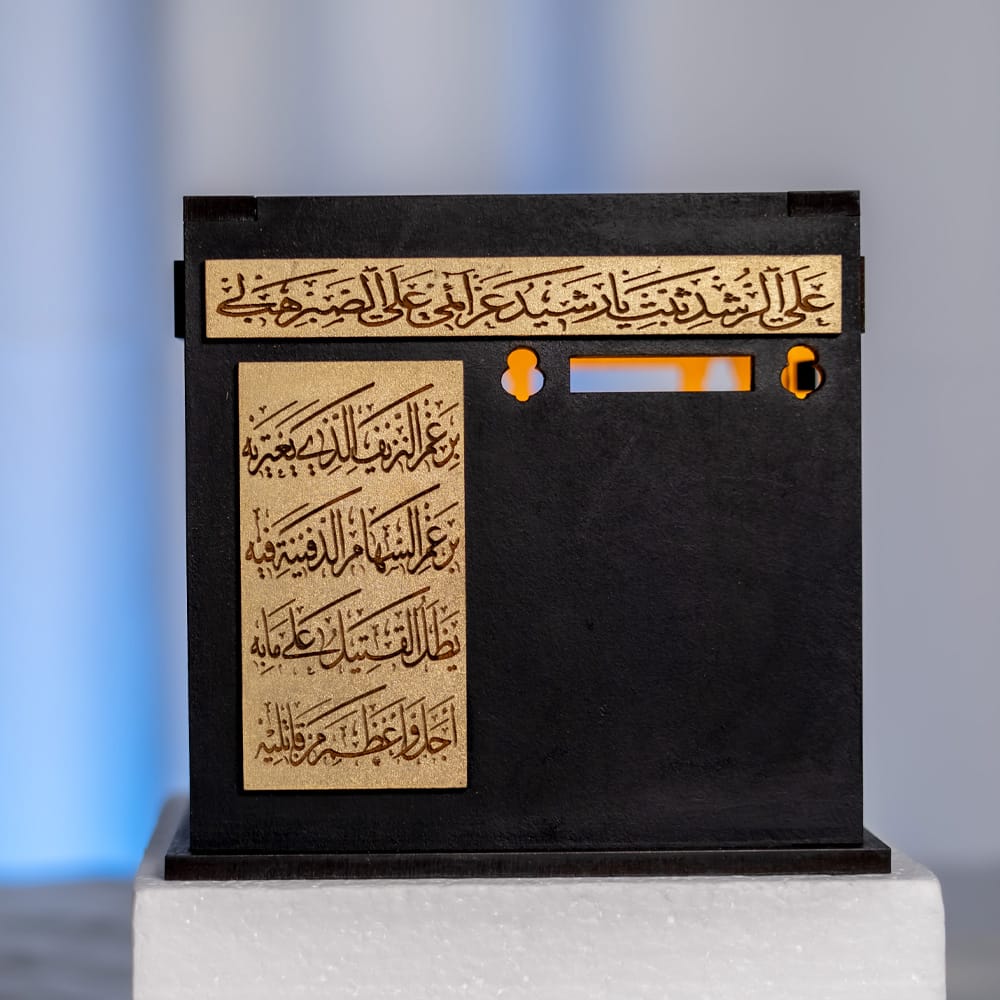 عَلَى الرُّشْدِ ثَبِّتْ يَا رَشِيدُ عَزَائِمِي عَلَى الصَّبْرِ هَبْ لِي
بِرَغْمِ النَّزِيفِ الَّذِي يَعْتَرِيهِ
بِرَغْمِ السِّهَامِ الدَّفِينَةِ فِيهِ
يَظَلُّ القَتِيلُ عَلَى مَا بِهِ
أَجَلَّ وَأَعْظَمَ مِنْ قَاتِلِيهِ